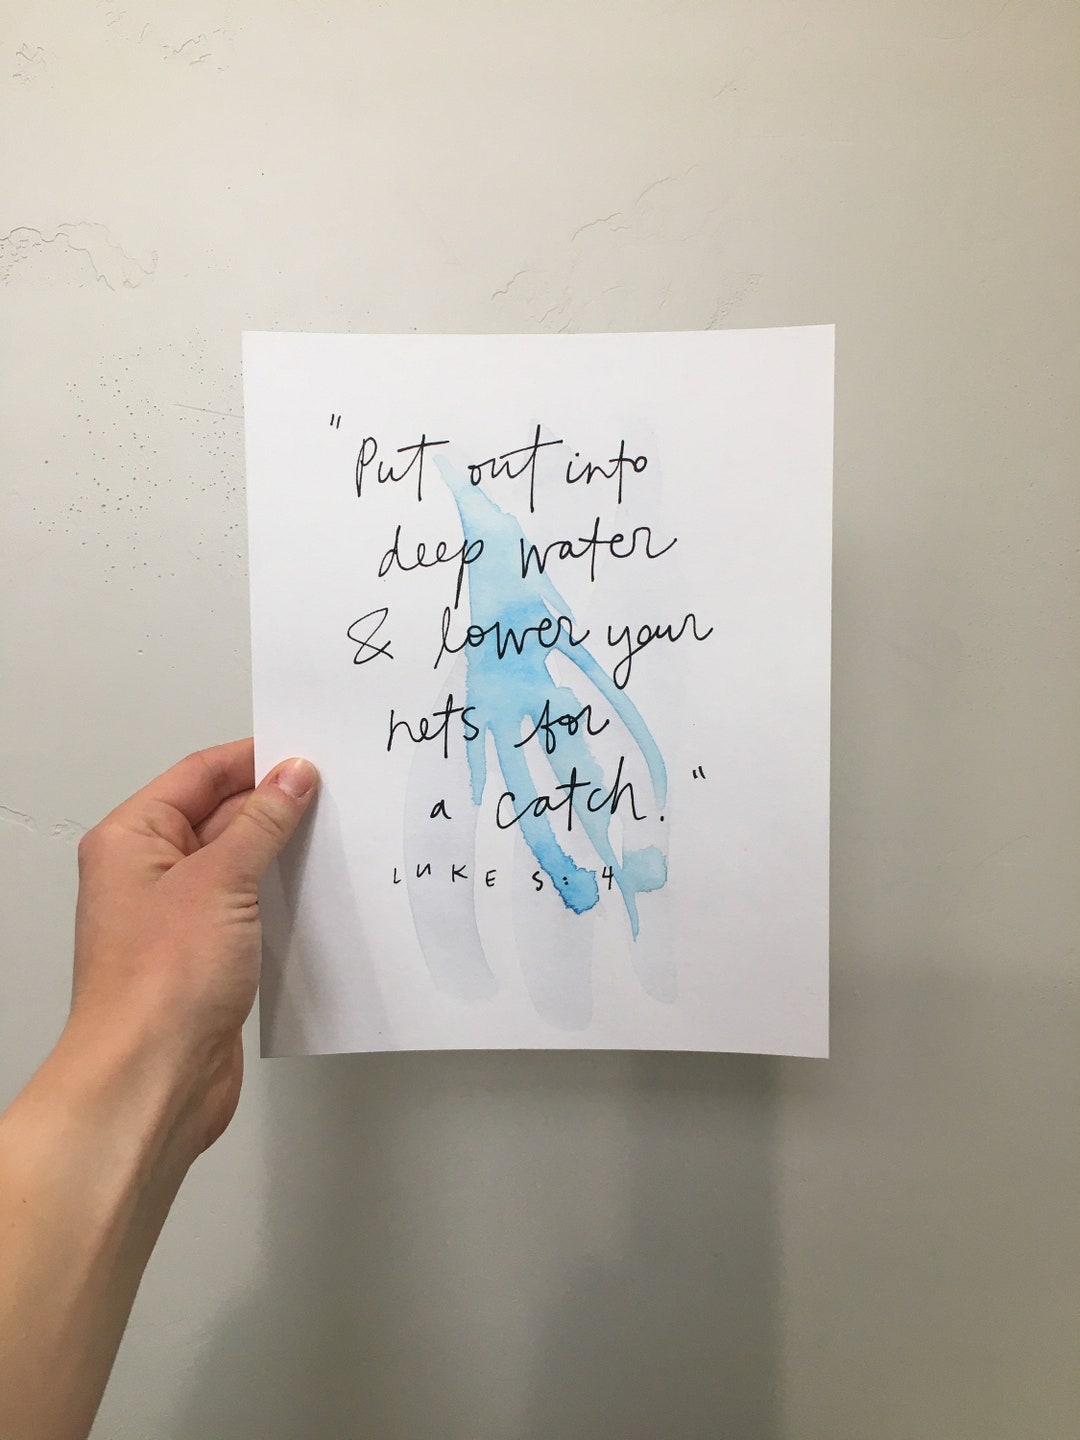 "Put out into
deep water
& lower your
nets for
a catch."
LUKE 5:4